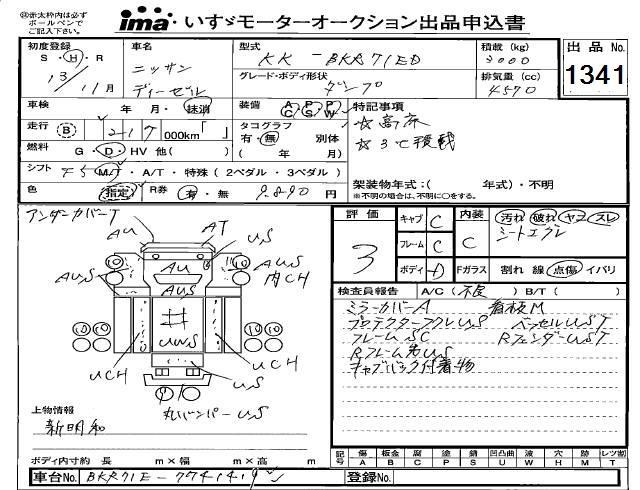 ㊟赤太枠内は必ず
ボールペンで
ご記入下さい。
ima いすゞモーターオークション出品申込書
初度登録
S・H・R
13/11月
車名
ニッサン
ディーゼル
型式
KK-BKR71ED
グレード・ボディ形状
ダンプ
積載(kg)
3000
排気量(cc)
4570
出品No.
1341
車検 年 月・抹消
装備 AC PS PW
特記事項
☆高床
☆3℃積載
走行 B 000km「 」
タコグラフ 有・無 別体
( 年 月)
燃料 G・D・HV 他( )
シフト F5 MT・A/T・特殊(2ペダル・3ペダル)
色 指定 R券 有・無 9890円
架装物年式:( 年式)・不明
※不明の場合は、不明に○をする。
アンダーカバーT
AU
AT
US
AU
AUS
AUS
肉CH
AUS
UCH
UCH
US
丸バンパーUS
評価
3
キャブ C
フレーム C
ボディ D
内装 C
汚れ 破れ ヤコ スレ
シートエグレ
Fガラス 割れ 線 点傷 イバリ
検査員報告 A/C(不良) B/T( )
ミラーカバーA
看板M
プロテクターフクレUS
ベッセルUST
フレームSC
RフェンダーUST
キャブバック付着物
上物情報
新明和
ボディ内寸約 長 m×幅 m×高 m
記号 傷A 板金B 腐C 塗P 錆S 凹凸曲U 波W 穴H 跡M レツ割T
車台No. BKR71E-7741419
登録No.